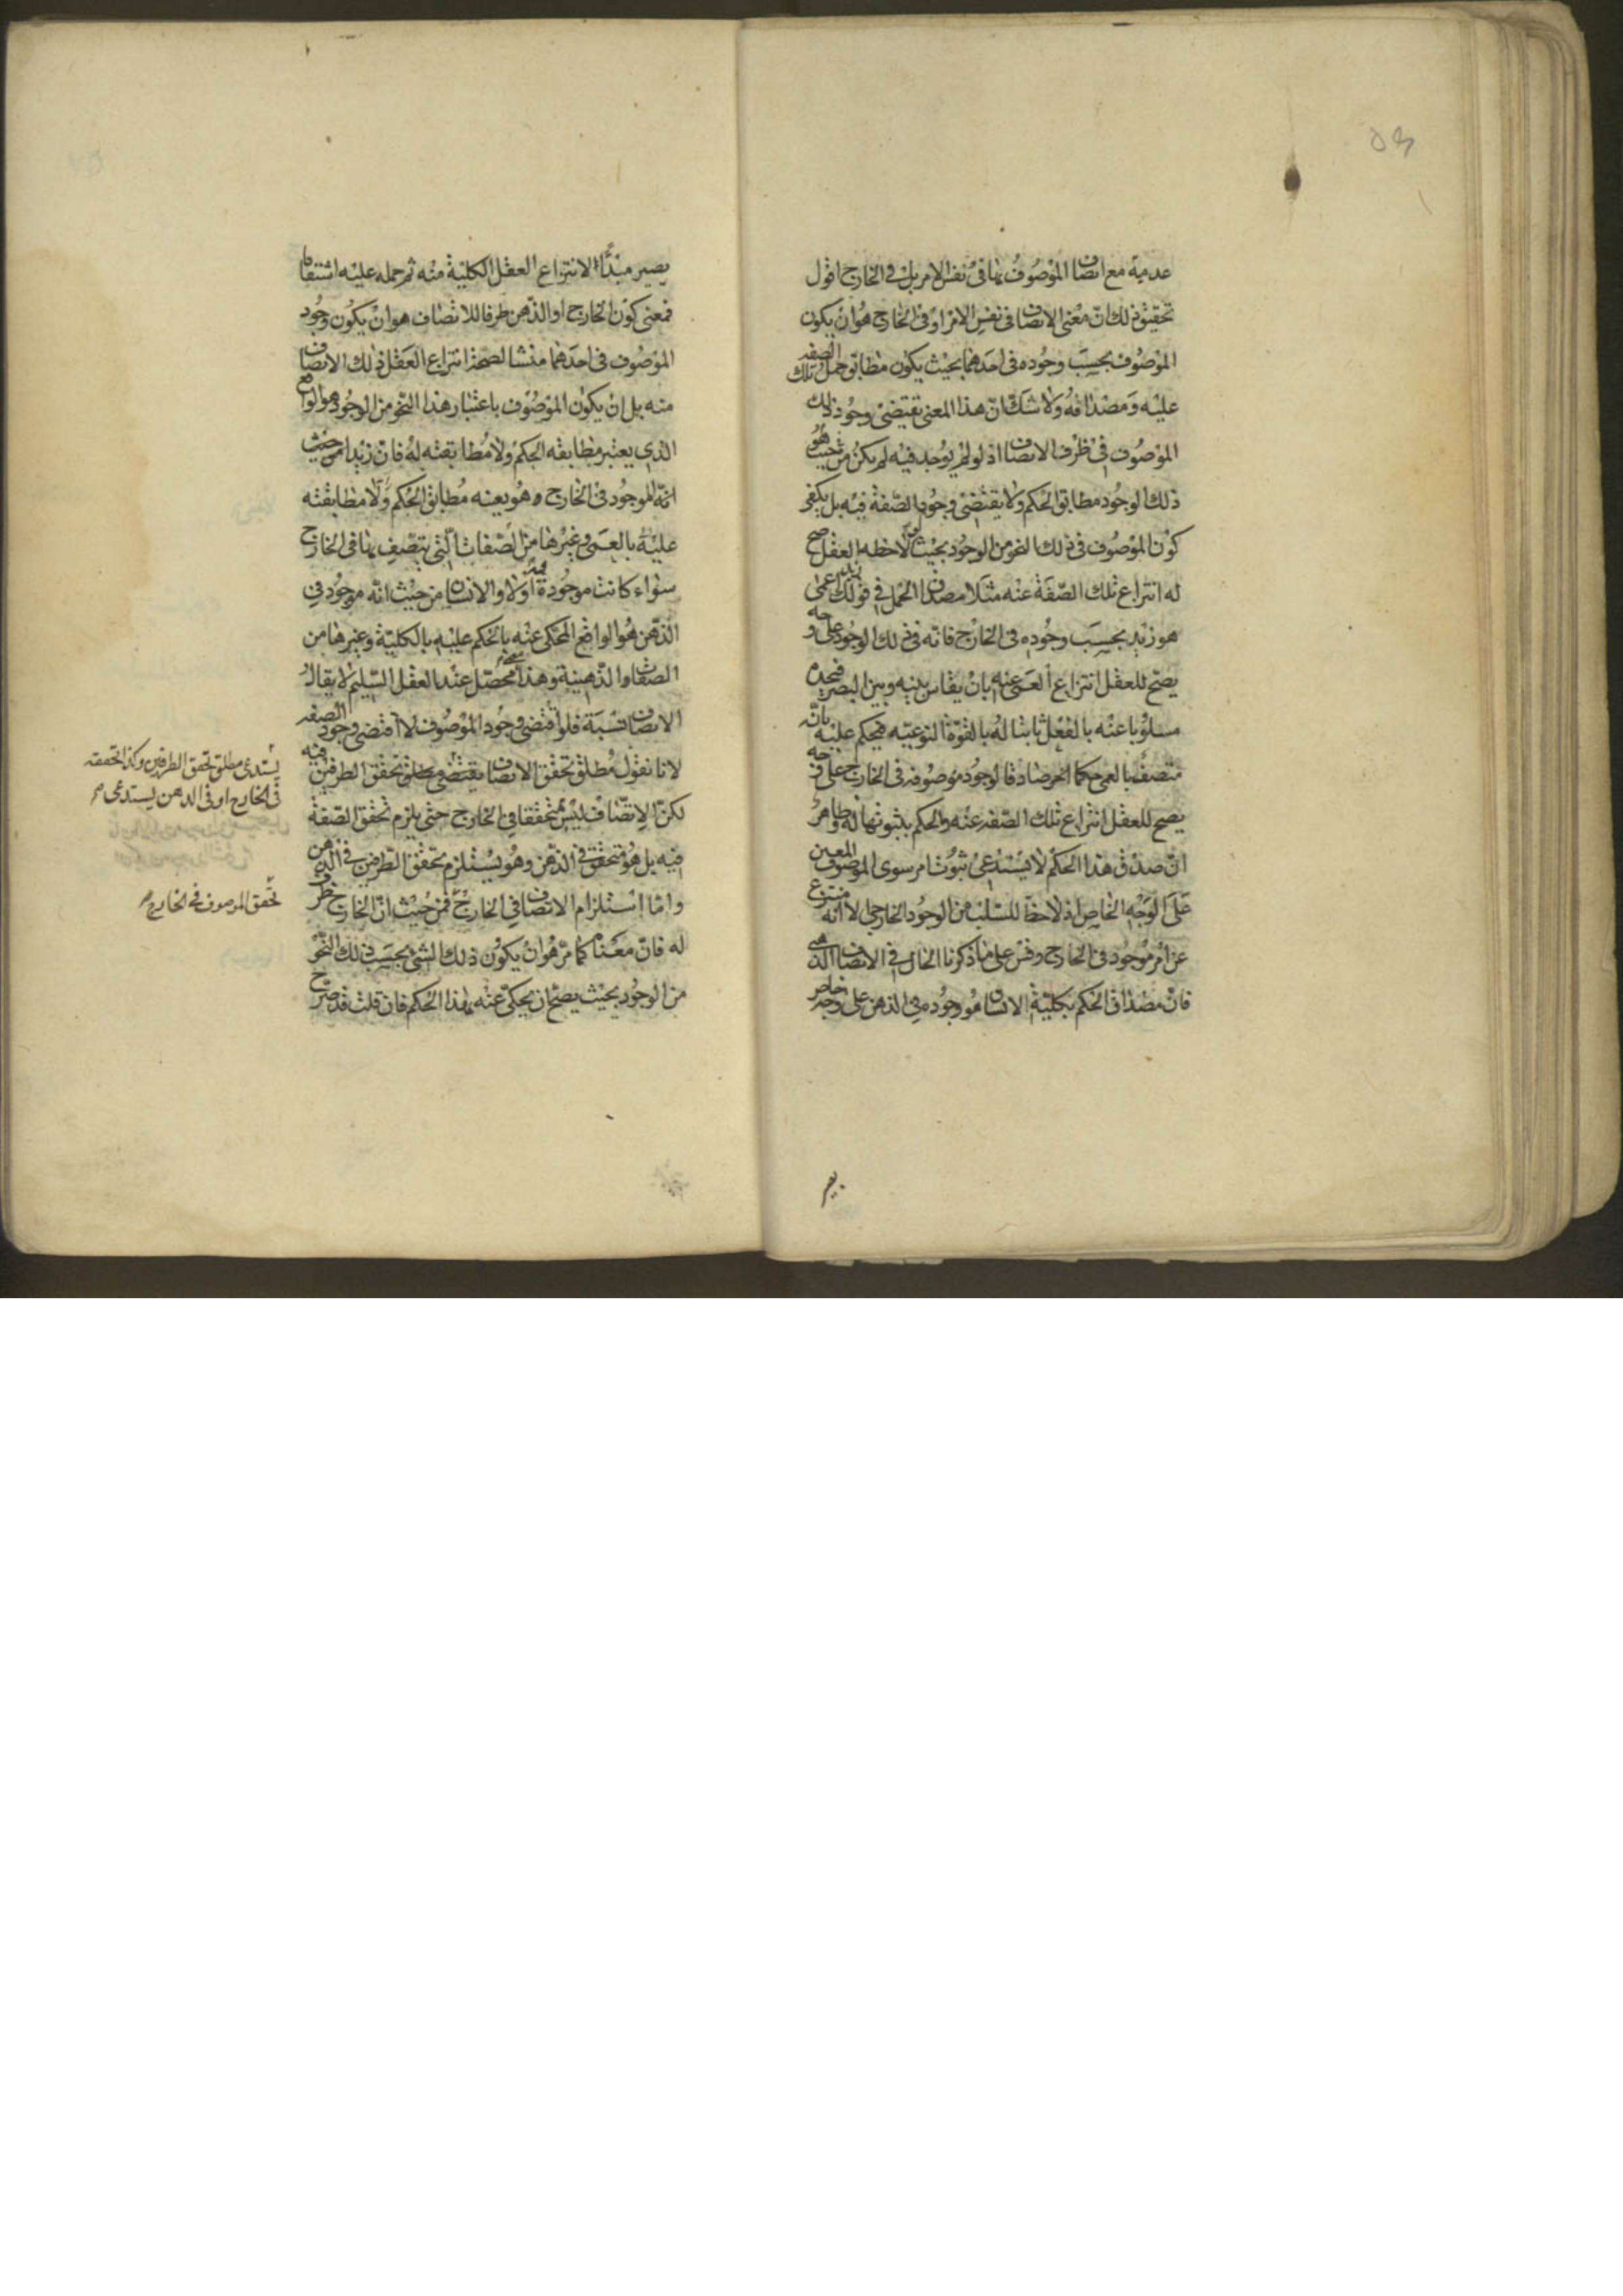 ٥٣
عدمية مع اتصاف الموصوف بها في نفس الامر بل في الخارج اقول
تحقيق ذلك ان معنى الاتصاف في نفس الامر او في الخارج هو ان يكون
الموصوف بحسب وجوده في احدهما بحيث يكون مطابق حمل تلك الصفه
عليه ومصداقه ولا شك ان هذا المعنى يقتضى وجود ذلك
الموصوف في ظرف الاتصاف اذ لو لم يوجد فيه لم يكن من حيث هو
ذلك الوجود مطابق الحكم ولا يقتضى وجود الصفة فيه بل يكفى
كون الموصوف في ذلك النحو من الوجود بحيث لو لاحظه العقل صح
له انتزاع تلك الصفة عنه مثلا مصداق الحمل في قولك زيد اعمى
هو زيد بحسب وجوده في الخارج فانه في ذلك الوجود على وجه
يصح للعقل انتزاع العمى عنه بان يقاس بينه وبين البصر فيجده
مسلوبا عنه بالفعل ثابتا له بالقوة النوعيه فيحكم عليه بانه
متصف بالعمى كما الحرضا دقا لوجود موصوفه في الخارج على وجه
يصح للعقل انتزاع تلك الصفه عنه والحكم بثبوتها له وظاهر
ان صدق هذا الحكم لا يستدعى ثبوت امر سوى الموصوف المعين
على الوجه الخاص اذ لا حظ للسلب من الوجود الخارجى الا انه منتزع
عن امر موجود في الخارج وقس على ما ذكرنا الحال في الاتصاف الذهنى
فان مصداق الحكم بكلية الانسان هو وجوده في الذهن على وجه خاص
يصير
يصير مبدأ لانتزاع العقل الكلية منه ثم حمله عليه اشتقاقا
فمعنى كون الخارج او الذهن ظرفا للاتصاف هو ان يكون وجود
الموصوف في احدهما منشا لصحة انتزاع العقل ذلك الاتصاف
منه بل ان يكون الموصوف باعتبار هذا النحو من الوجود هو الواقع
الذي يعتبر مطابقه الحكم ولا مطابقته له فان زيدا من حيث
انه الموجود في الخارج وهو بعينه مطابق الحكم ولا مطابقته
عليه بالعمى وغيرها من الصفات التي يتصف بها في الخارج
سواء كانت موجودة فيه اولا والانسان من حيث انه موجود في
الذهن هو الواقع المحكى عنه بالحكم عليه بالكلية وغيرها من
الصفات الذهنية وهذا معنى محصل عند العقل السليم لا يقال
الاتصاف نسبة فلو اقتضى وجود الموصوف لاقتضى وجود الصفه
لانا نقول مطلق تحقق الاتصاف يقتضى مطلق تحقق الطرفين فيه
لكن الاتصاف ليس متحققا في الخارج حتى يلزم تحقق الصفة
فيه بل هو متحقق في الذهن وهو يستلزم تحقق الطرفين في الذهن
واما استلزام الاتصاف في الخارج فمن حيث ان الخارج ظرف
له فان معناه كما مر هو ان يكون ذلك الشئ بحسب ذلك النحو
من الوجود بحيث يصح ان يحكى عنه بهذا الحكم فان قلت قد صرح
يستدعى مطلق تحقق الطرفين وكذا تحققه
في الخارج او في الذهن يستدعى
تحقق الموصوف في الخارج